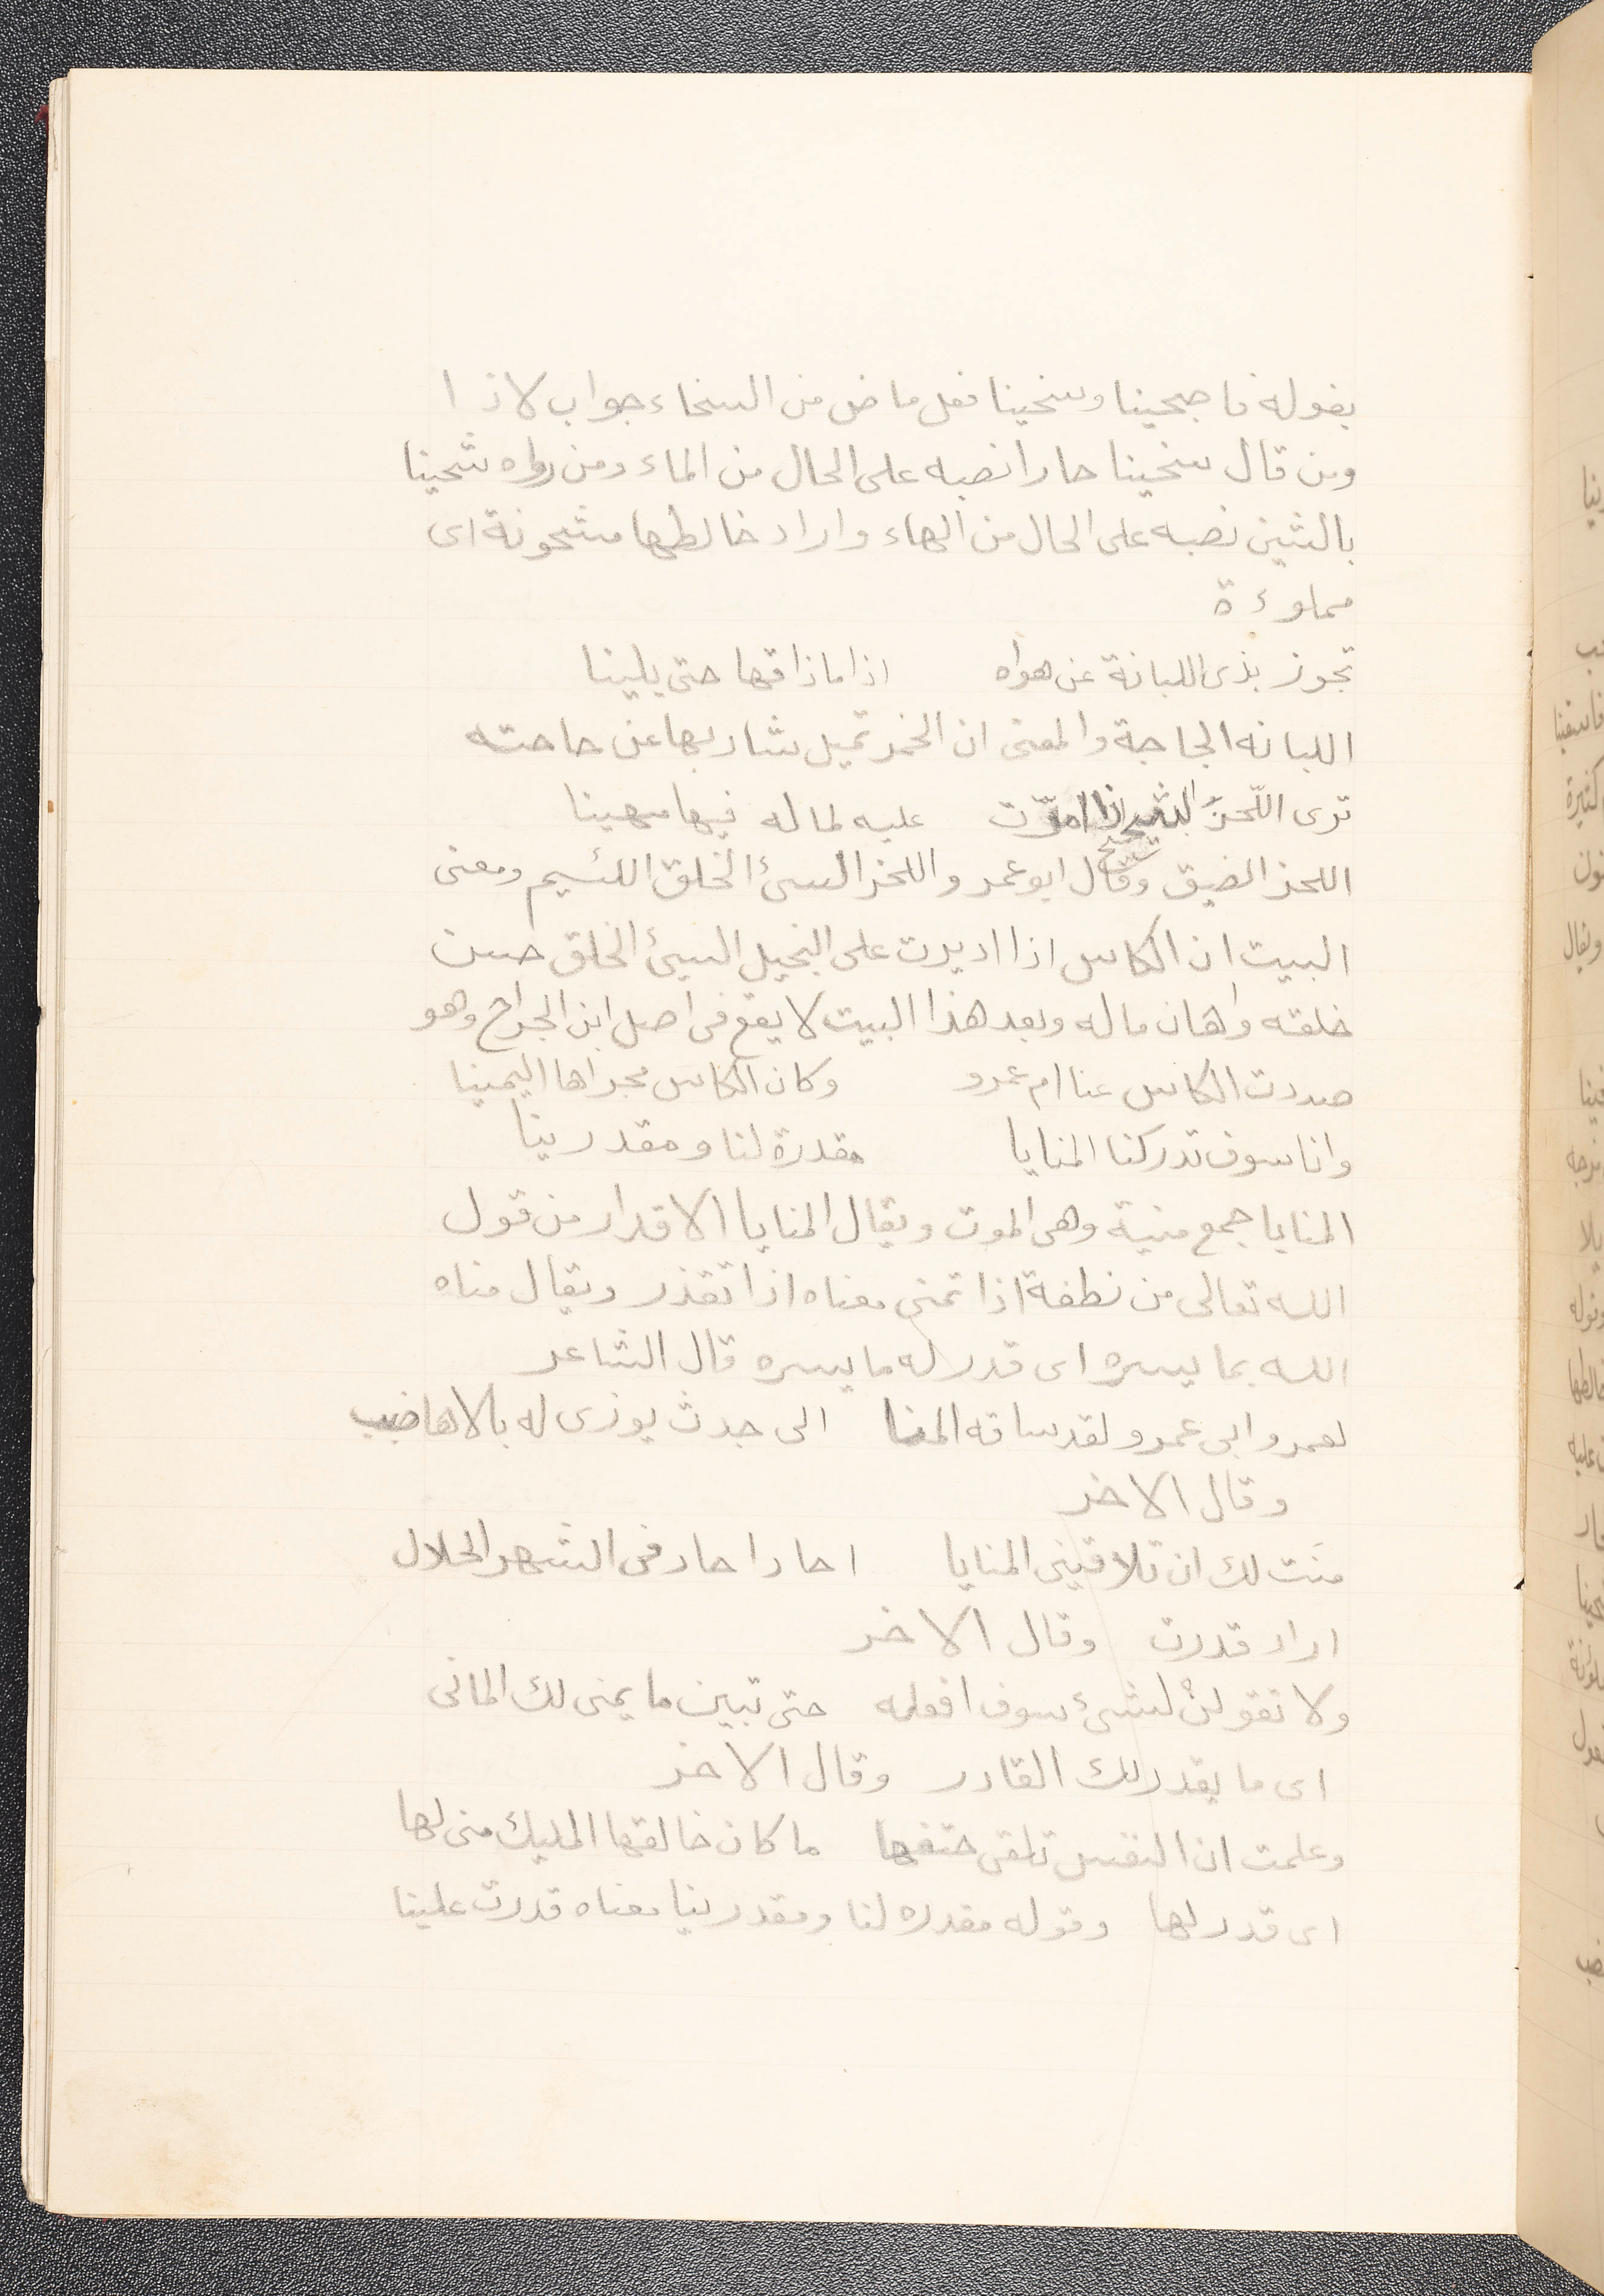 بقوله فاصبحينا وسخينا فعل ماض من السخاء جواب لاذا
ومن قال سخينا حارا نصبه على الحال من الماء ومن رواه شحينا
بالشين نصبه على الحال من الهاء واراد خالطها مشحونة اى
مملوءة
تجوز بذى اللبانة عن هواه اذا ماذاقها حتى يلينا
اللبانه الحاجة والمعنى ان الخمر تميل شاربها عن حاجته
ترى اللّحز الشحيح اذا امرّت عليه لماله فيها مهينا
اللحز الضيق وقال ابو عمرو اللحز السىٔ الخلق اللئيم ومعنى
البيت ان الكاس اذا اديرت على البخيل السيئ الخلق حسن
خلقه واهان ماله وبعد هذا البيت لا يقع فى اصل ابن الجراح وهو
صددت الكاس عنا ام عمرو وكان الكاس مجراها اليمينا
وانا سوف تدركنا المنايا مقدرة لنا ومقدرينا
المنايا جمع منية وهى الموت ويقال المنايا الاقدار من قول
الله تعالى من نطفة اذا تمنى معناه اذا تقذر ويقال مناه
الله بما يسره اى قدر له ما يسره قال الشاعر
لعمرو ابى عمرو لقد ساقه المنا الى جدث يوزى له بالاهاضب
وقال الاخر
منَت لك ان تلاقينى المنايا احاد احاد فى الشهر الحلال
اراد قدرت وقال الاخر
ولا تقولنْ لشىٔ سوف افعله حتى تبين ما يمنى لك المانى
اى ما يقدر لك القادر وقال الاخر
وعلمت ان النفس تلقى حتفها ما كان خالقها المليك منى لها
اى قدر لها وقوله مقدره لنا ومقدرينا معناه قدرت علينا